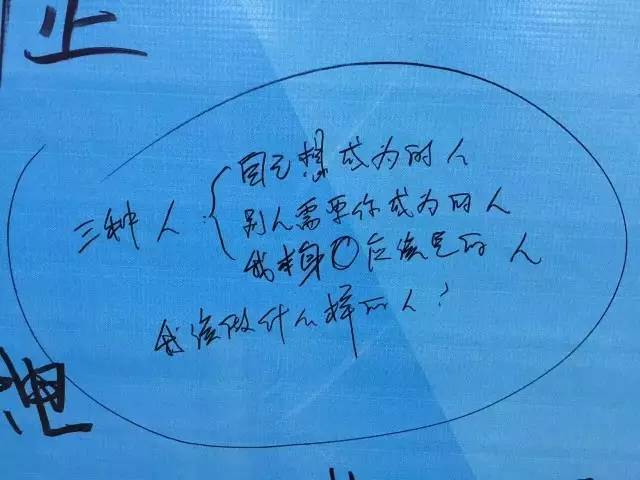 止
自己想成为的人
三种人
别人需要你成为的人
我本身应该是的人
我该做什么样的人?